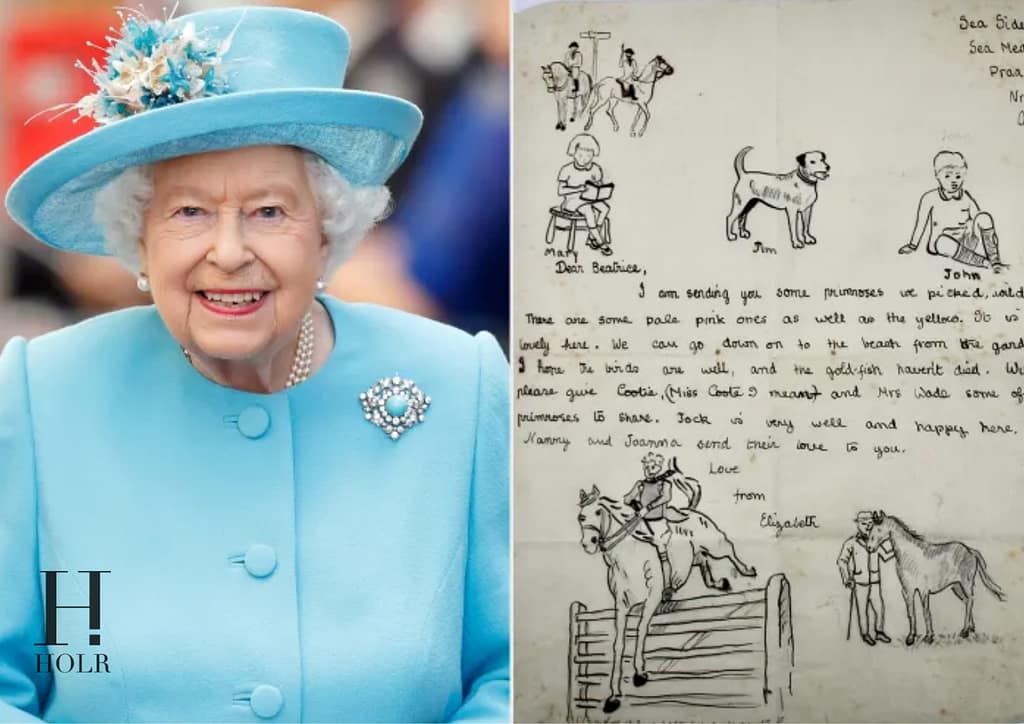 H!
HOLR
Sea Side
Sea
Praa
Nr
Mary
Jim
John
John
Dear Beatrice,
I am sending you some primroses we picked, wild
There are some pale pink ones as well as the yellow. It is
lovely here. We can go down on to the beach from the gard
I hope the birds are well, and the gold-fish haven't died. Wi
please give Cootie, (Miss Coote I meant) and Mrs Wade some of
primroses to share. Jock is very well and happy here.
Nanny and Joanna send their love to you.
Love
from
Elizabeth